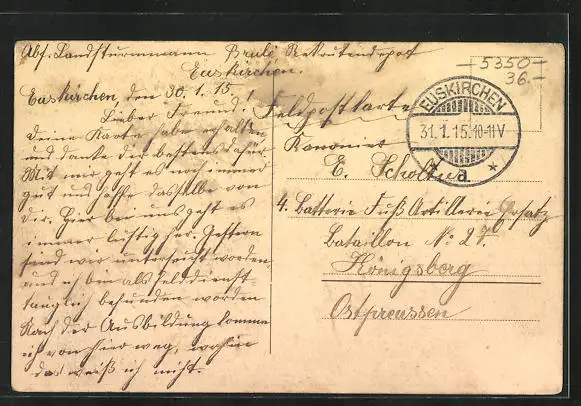 Abs. Landsturmmann Brule Rekrutendepot
Euskirchen.
Euskirchen, den 30.1.15.
Lieber Freund!
Deine Karte habe erhalten
und danke dir bestens dafür.
Mit mir geht es noch immer
gut und hoffe dasselbe von
dir. Hier bei uns geht es
immer lustig her. Gestern
sind wir untersucht worden
und ich bin als felddienst-
tauglich befunden worden
Nach der Ausbildung komme
ich von hier weg, wohin
das weiß ich nicht.
Feldpostkarte
Kanonier
E.
4. Batterie Fuß Artillerie Ersatz
Bataillon No 27.
Königsberg
Ostpreussen
EUSKIRCHEN
31.1.15.10-11V
*a *
5350
36.-